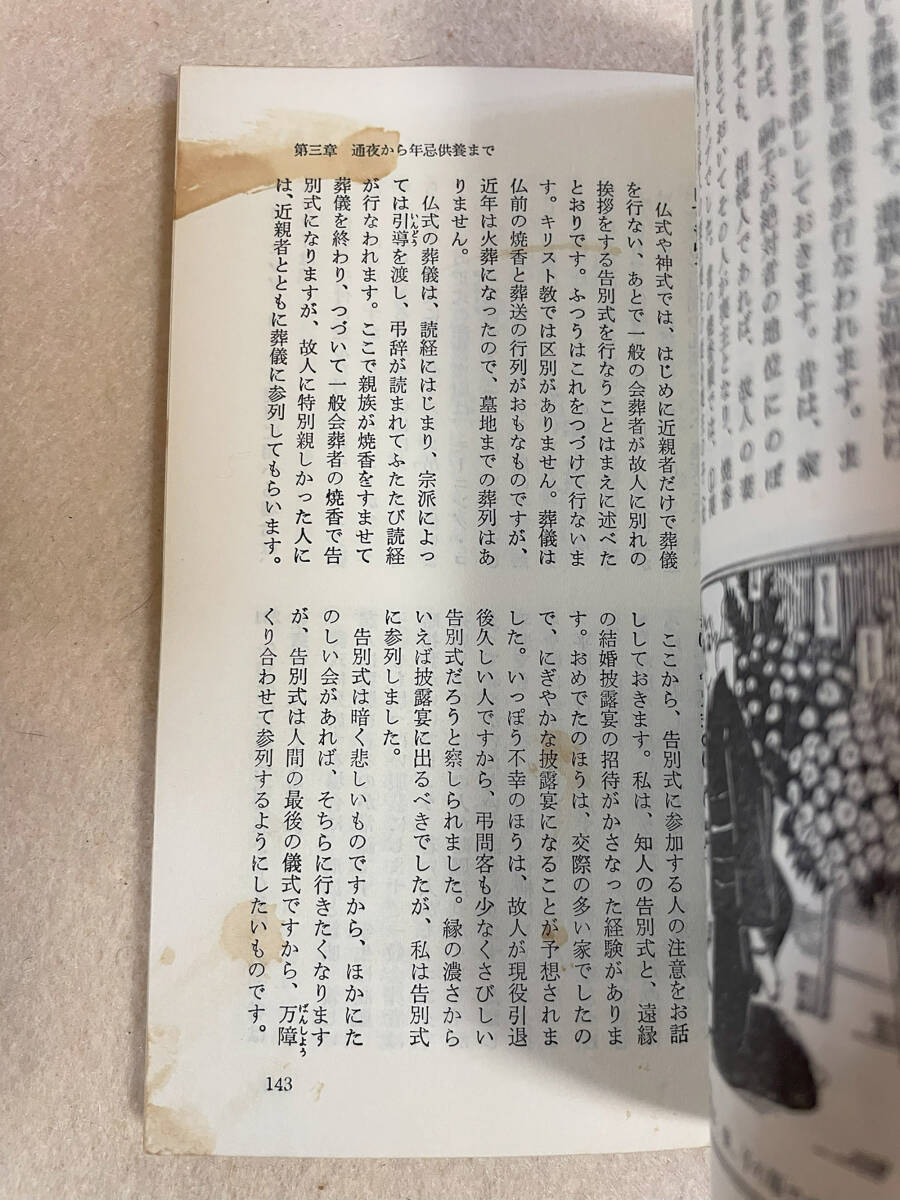 第三章　通夜から年忌供養まで
仏式や神式では、はじめに近親者だけで葬儀
を行ない、あとで一般の会葬者が故人に別れの
挨拶をする告別式を行なうことはまえに述べた
とおりです。ふつうはこれをつづけて行ないま
す。キリスト教では区別がありません。葬儀は
仏前の焼香と葬送の行列がおもなものですが、
近年は火葬になったので、墓地までの葬列はあ
りません。
仏式の葬儀は、読経にはじまり、宗派によっ
ては引導を渡し、弔辞が読まれてふたたび読経
いんどう
が行なわれます。ここで親族が焼香をすませて
葬儀を終わり、つづいて一般会葬者の焼香で告
別式になりますが、故人に特別親しかった人に
は、近親者とともに葬儀に参列してもらいます。
ここから、告別式に参加する人の注意をお話
ししておきます。私は、知人の告別式と、遠縁
の結婚披露宴の招待がかさなった経験がありま
す。おめでたのほうは、交際の多い家でしたの
で、にぎやかな披露宴になることが予想されま
した。いっぽう不幸のほうは、故人が現役引退
後久しい人ですから、弔問客も少なくさびしい
告別式だろうと察しられました。縁の濃さから
いえば披露宴に出るべきでしたが、私は告別式
に参列しました。
告別式は暗く悲しいものですから、ほかにた
のしい会があれば、そちらに行きたくなります
が、告別式は人間の最後の儀式ですから、万障
ばんしょう
くり合わせて参列するようにしたいものです。
143